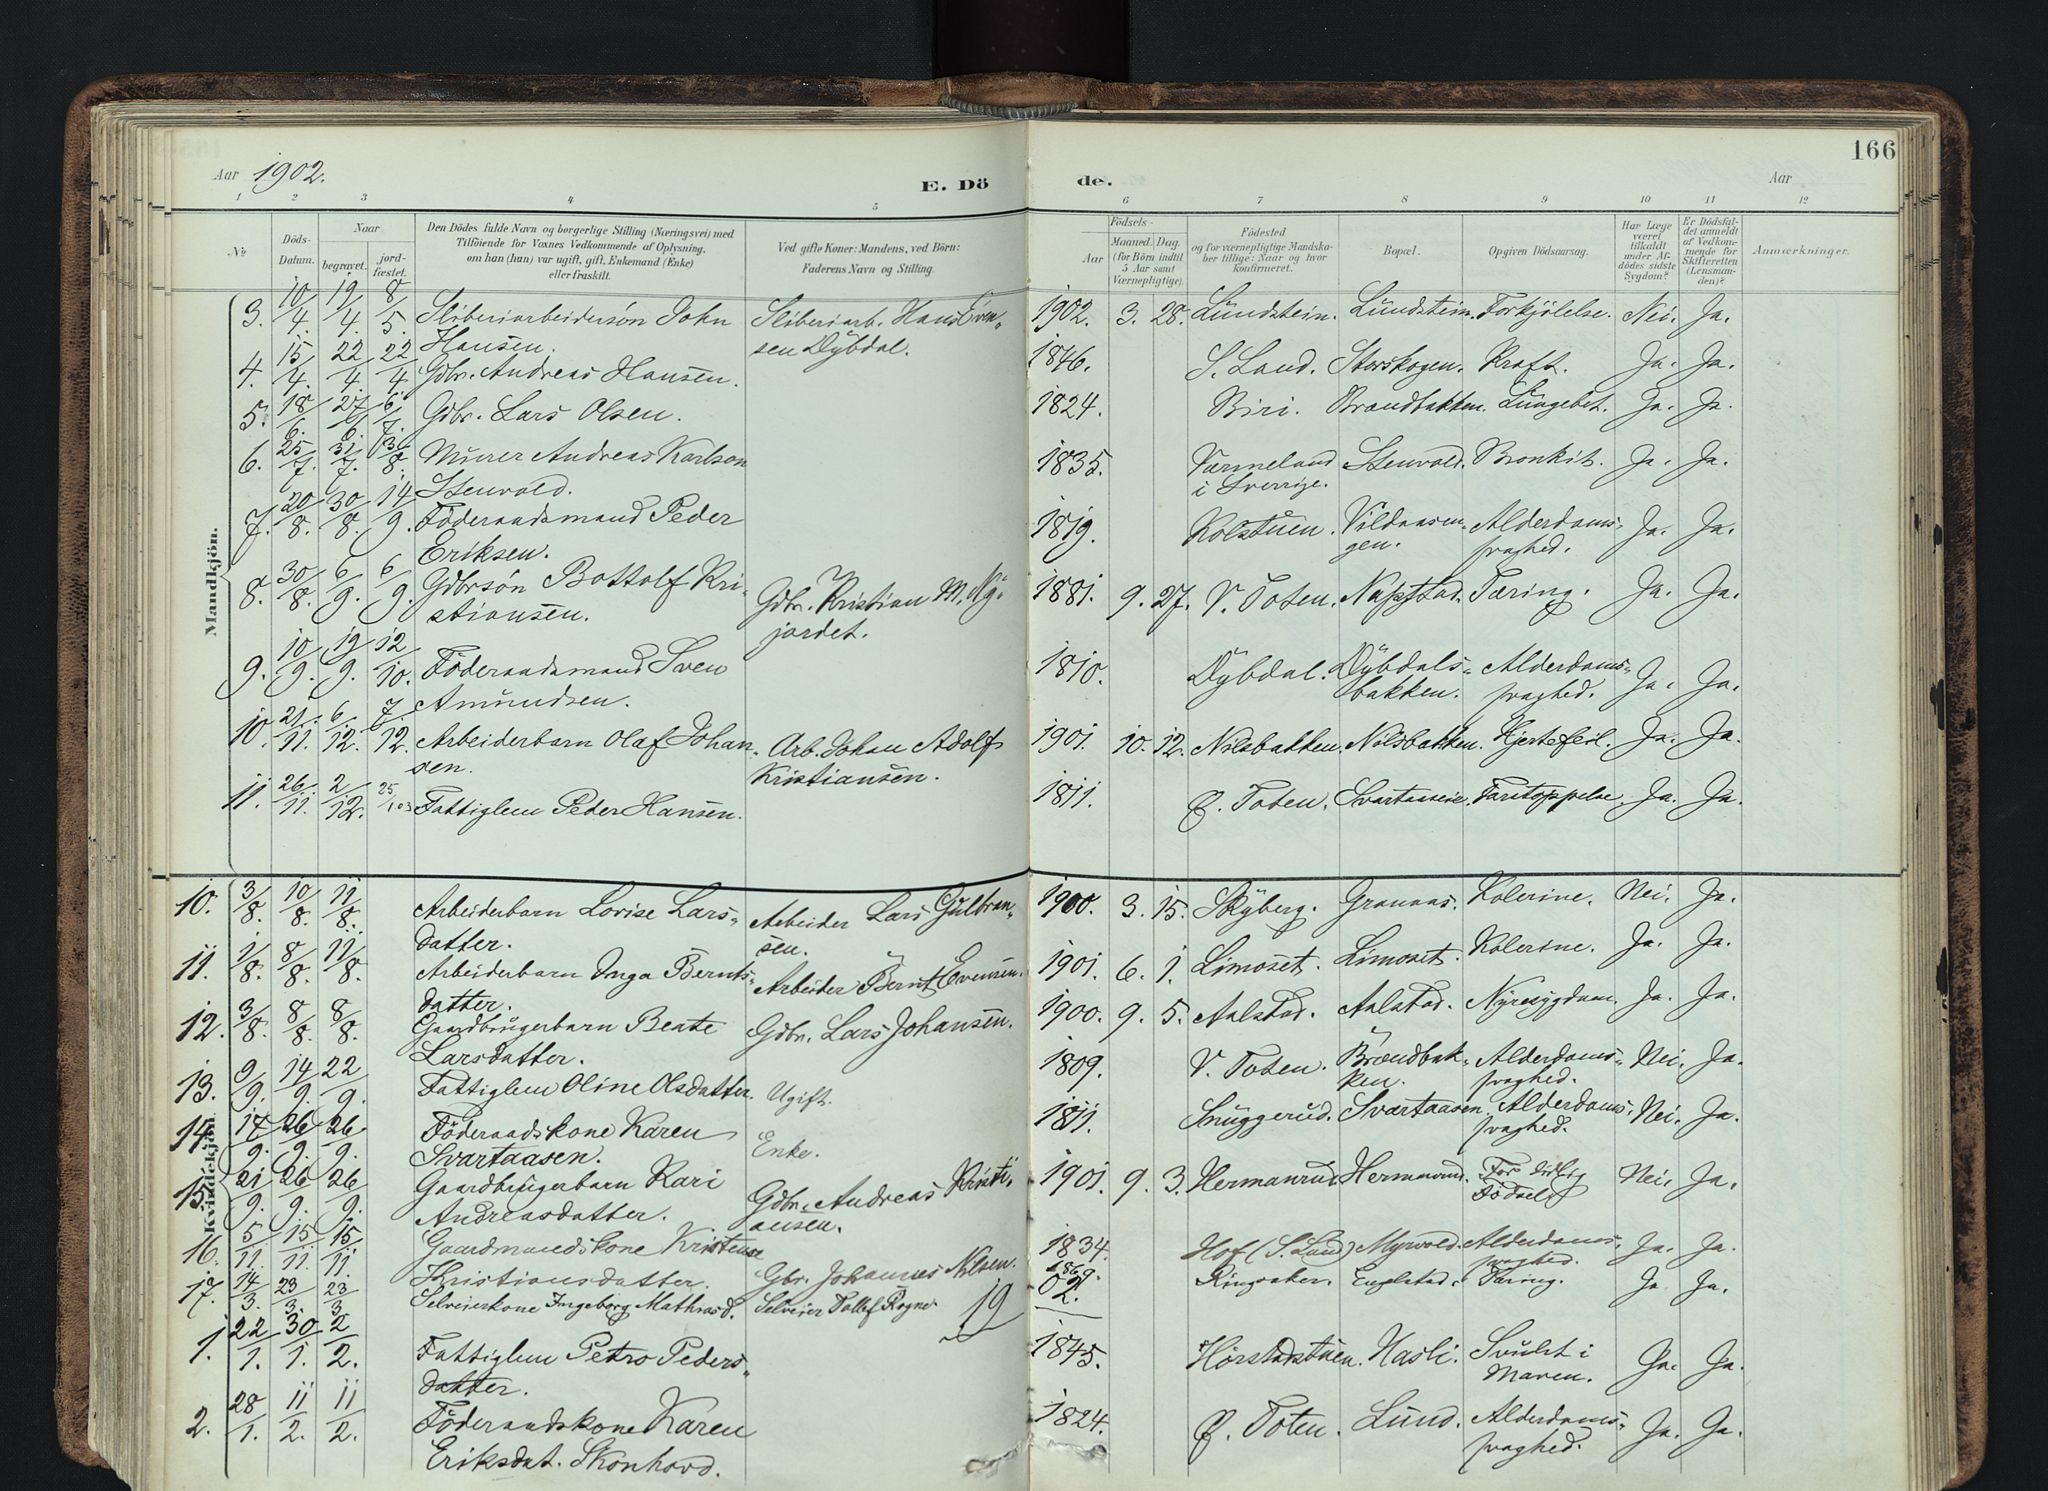 Aar 1902. E. Dö de. Aar 166
1 2 3 4 5 6 7 8 9 10 11 12
No. Döds-Datum. Naar begravet. jordfæstet. Den Dödes fulde Navn og borgerlige Stilling (Næringsvei) med Tilföiende for Voxnes Vedkommende af Oplysning, om han (hun) var ugift, gift, Enkemand (Enke) eller fraskilt. Ved gifte Koner: Mandens, ved Börn: Faderens Navn og Stilling. Födsels- Aar Maaned. Dag. (for Börn indtil 5 Aar samt Værnepligtige). Födested og for værnepligtige Mandskaber tillige: Naar og hvor konfirmeret. Bopæl. Opgiven Dödsaarsag. Har Læge været tilkaldt under Afdödes sidste Sygdom? Er Dödsfaldet anmeldt af Vedkommende for Skifteretten (Lensmanden)? Anmærkninger.
Mandkjön.
3. 10/4. 19/4. 8/5. Sliberiarbeidersön John Sliberiarb. Hans Even- 1902. 3. 28. Lundstein. Lundstein. Forkjölelse. Nei. Ja.
Hansen. sen Dybdal.
4. 15/4. 22/4. 22/4. Gdbr. Andreas Hansen. 1846. S. Land. Storskogen. Kræft. Ja. Ja.
5. 18/6. 27/6. 6/7. Gdbr. Lars Olsen. 1824. Biri. Brændbakken. Lungebet. Ja. Ja.
6. 25/7. 31/7. 13/8. Murer Andreas Karlson 1835. Værmeland Stenvold. Bronkit. Ja. Ja.
Stenvold. i Sverrige.
7. 20/8. 30/8. 14/9. Föderaadsmand Peder 1819. Kolstuen. Vildaasen- Alderdoms- Ja. Ja.
Eriksen. gen. svaghed.
8. 30/8. 6/9. 6/9. Gdbrsön Bottolf Kri- Gdbr. Kristian M. Ny- 1881. 9. 27. V. Toten. Næpstad. Tæring. Ja. Ja.
stiansen. jordet.
9. 10/9. 19/9. 12/10. Föderaadsmand Sven 1810. Dybdal. Dybdals- Alderdoms- Ja. Ja.
Amundsen. bakken. svaghed.
10. 21/11. 6/12. 7/12. Arbeiderbarn Olaf Johan- Arb. Johan Adolf 1901. 10. 12. Nilsbakken. Nilsbakken. Hjertefeil. Ja. Ja.
sen. Kristiansen.
11. 26/11. 2/12. 25/1 03 Fattiglem Peder Hansen. 1811. Ø. Toten. Svartaasen. Tarmstoppelse. Ja. Ja.
Kvindekjön.
10. 3/8. 10/8. 11/8. Arbeiderbarn Lovise Lars- Arbeider Lars Gulbran- 1900. 3. 15. Skyberg. Granaas. Kolerine. Nei. Ja.
datter. sen.
11. 1/8. 8/8. 11/8. Arbeiderbarn Inga Bernts- Arbeider Bernt Evensen. 1901. 6. 1. Limoset. Limoset. Kolerine. Ja. Ja.
datter.
12. 3/8. 8/8. 8/8. Gaardbrugerbarn Beate Gdbr. Lars Johansen. 1900. 9. 5. Aalstad. Aalstad. Nyresygdom. Ja. Ja.
Larsdatter.
13. 9/9. 14/9. 22/9. Fattiglem Oline Olsdatter. Ugift. 1809. V. Toten. Brændbak- Alderdoms- Nei. Ja.
ken. svaghed.
14. 17/9. 26/9. 26/9. Föderaadskone Karen Enke. 1811. Snuggerud. Svartaasen. Alderdoms- Nei. Ja.
Svartaasen. svaghed.
15. 21/9. 26/9. 26/9. Gaardbrugerbarn Kari Gdbr. Andreas Kristi- 1901. 9. 3. Hermanrud. Hermanrud. For tidlig Nei. Ja.
Andreasdatter. ansen. Födsel
16. 5/11. 15/11. 15/11. Gaardmandskone Kristense 1834. Hof (S. Land) Myrvold. Alderdoms- Ja. Ja.
Kristiansdatter. Gbr. Johannes Nilsen. svaghed.
17. 14/3. 23/3. 23/3. Selveierkone Ingeborg Mathiasd. Selveier Tollef Rogne. 1869. Ringsaker. Englstad. Tæring. Ja. Ja.
1902.
1. 22/1. 30/1. 2/2. Fattiglem Petro Peders- 1845. Hörstadstuen. Hasli. Svulst i Ja. Ja.
datter. Maven.
2. 28/1. 11/2. 11/2. Föderaadskone Karen 1824. Ø. Toten. Lund. Alderdoms- Ja. Ja.
Eriksdat. Skonhovd. svaghed.